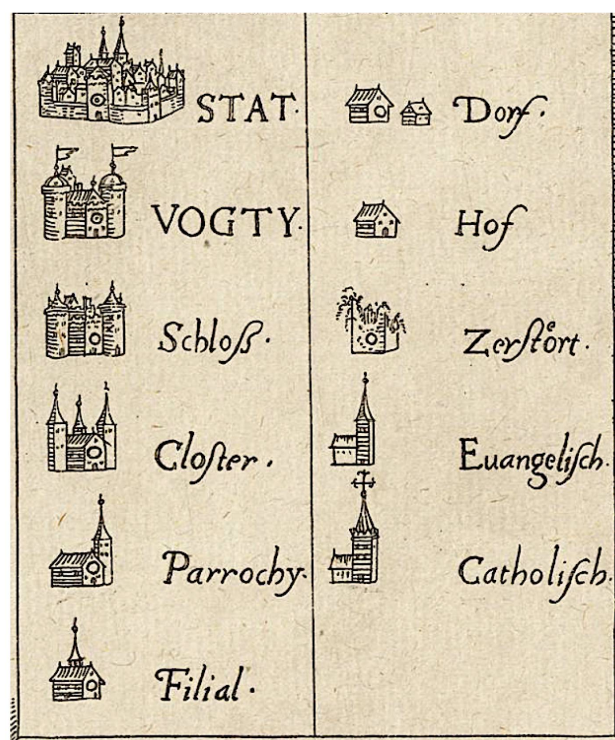 STAT.
VOGTY.
Schloß.
Cloſter.
Parrochy.
Filial.
Dorf.
Hof
Zerſtört.
Euangeliſch.
Catholiſch.